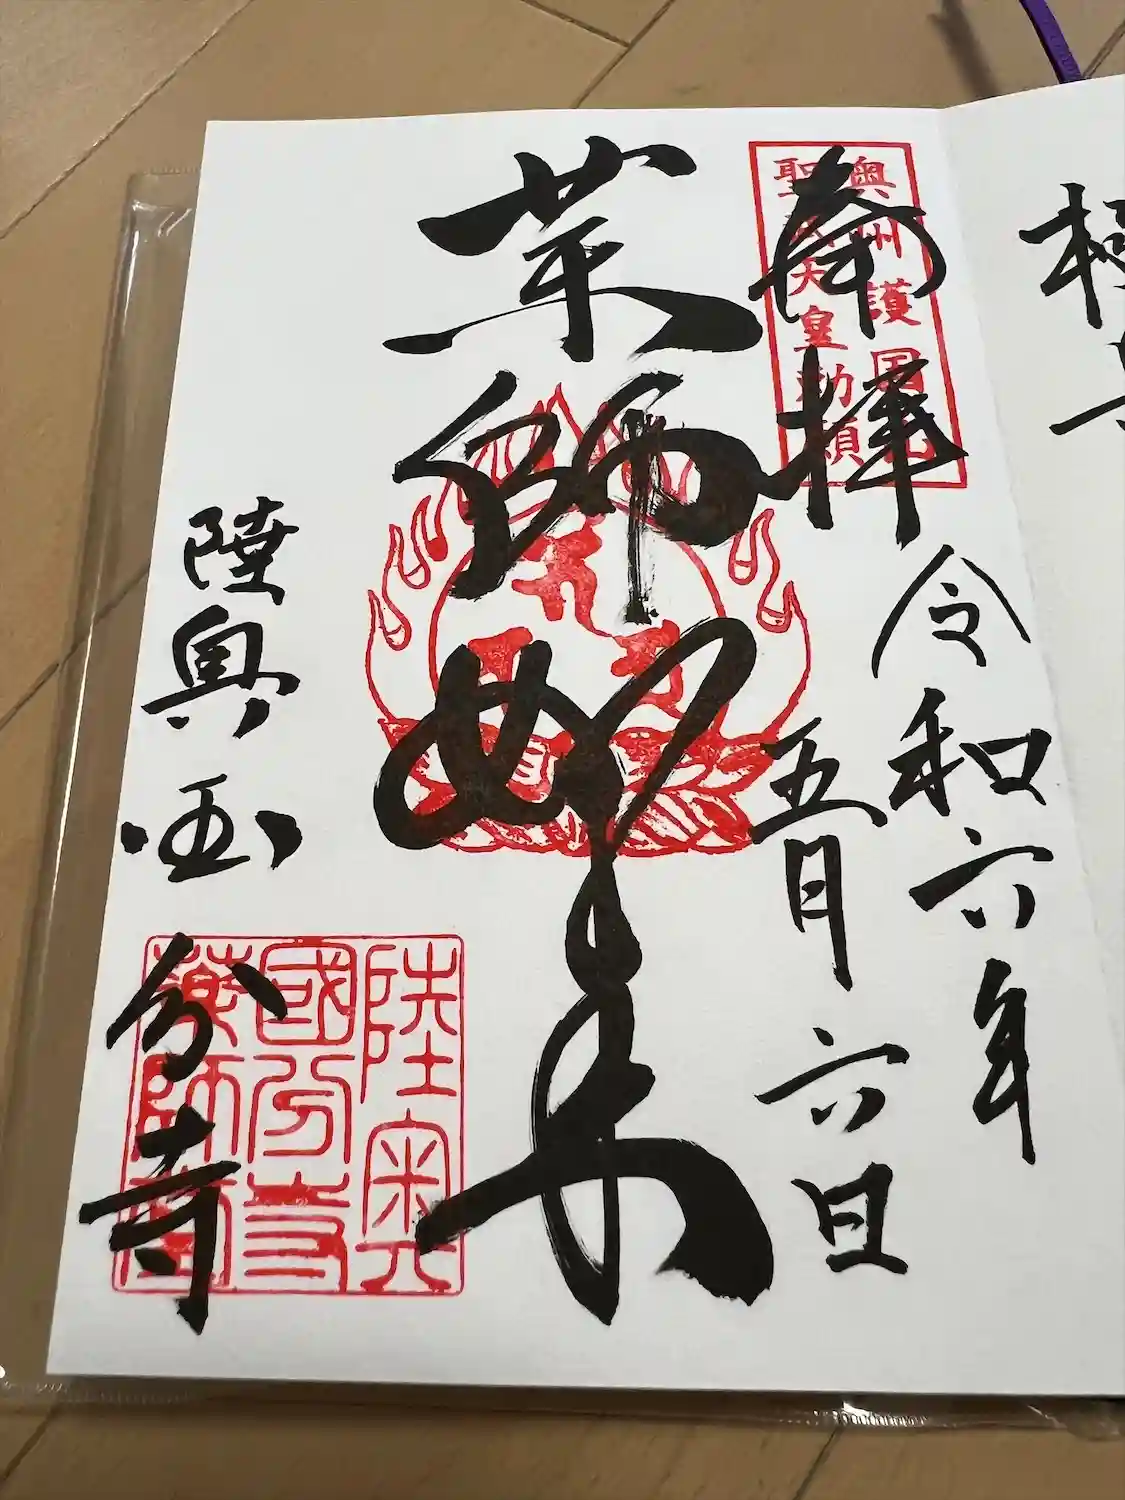 奉拝
令和六年
五月六日
薬師如来
陸奥国分寺
奥州護国山
聖武天皇勅願
陸奥
國分寺
藥師堂